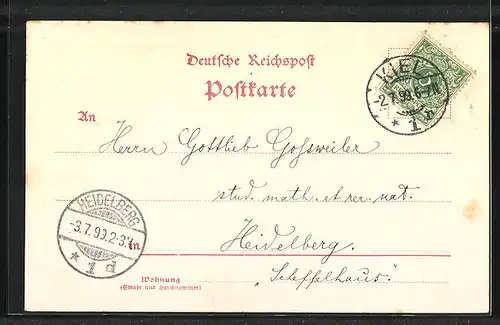 Deutsche Reichspost
Postkarte
KIEL
2.7.99.6-7N
* 1 r
An
Herrn Gottlieb Gossweiler
stud. math. et rer. nat.
HEIDELBERG
-3.7.99.2-3N
* 1 d
in
Heidelberg.
Wohnung
(Straße und Hausnummer)
„Scheffelhaus."